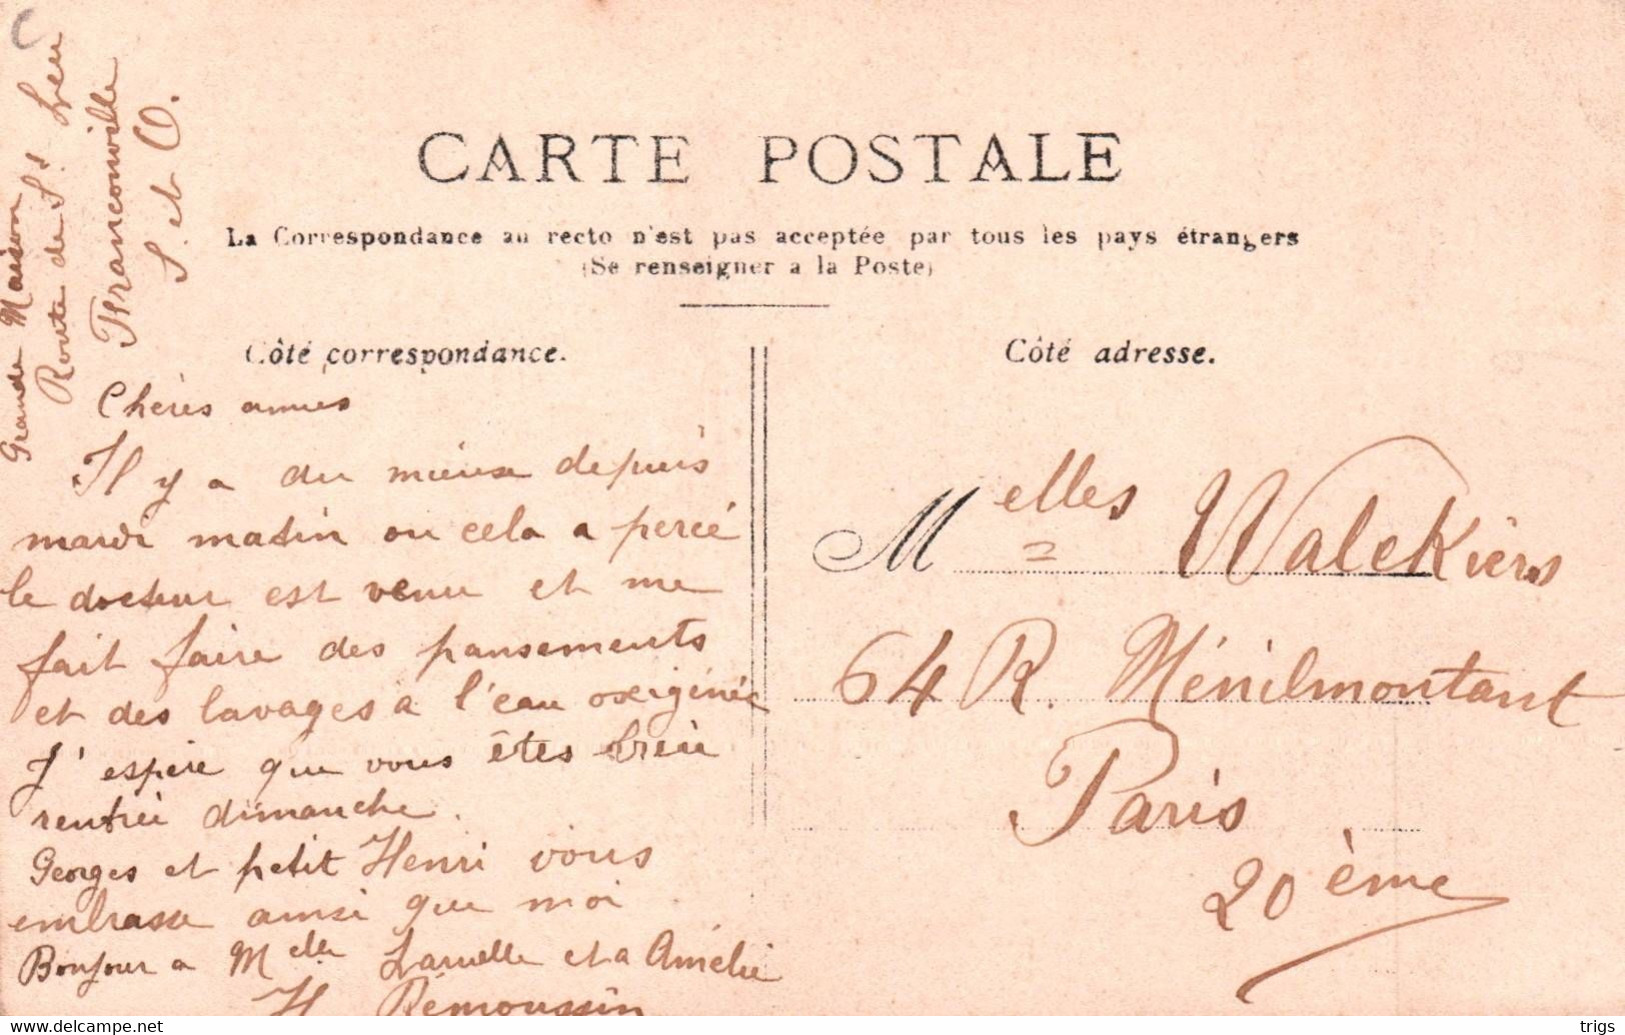 C
Grande Maison
Route de St Leu
Franconville
S. et O.
CARTE POSTALE
La Correspondance au recto n'est pas acceptée par tous les pays étrangers
(Se renseigner a la Poste)
Côté correspondance.
Côté adresse.
Chères amies
Il y a du mieux depuis
mardi matin ou cela a percé
le docteur est venu et me
fait faire des pansements
et des lavages a l'eau oxigénée
J'espère que vous êtes bien
rentrée dimanche.
Georges et petit Henri vous
embrasse ainsi que moi
Bonjour a Melle Laruelle et a Amélie
H Remoussin
Melles Walckiers
64 R. Ménilmontant
Paris
20ème
www.delcampe.net
trigs